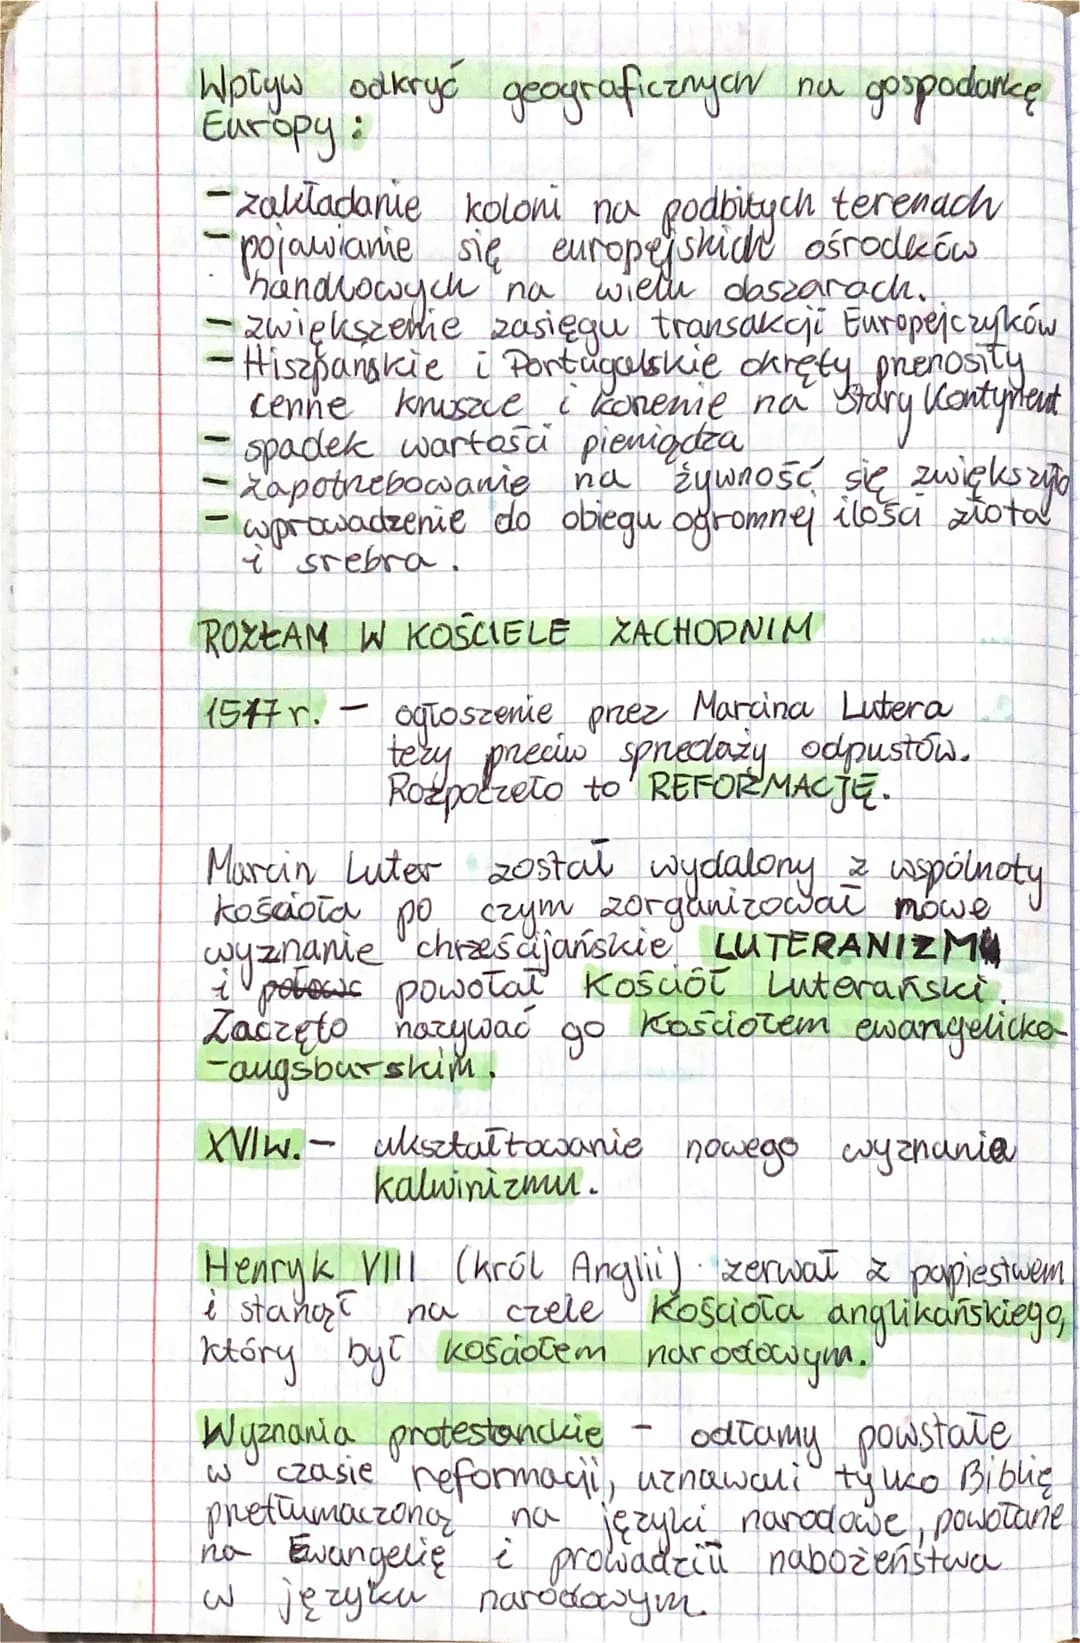 Wpływ odkryć geograficznych na gospodarkę
Europy:
- zakładanie koloni na podbitych terenach
- pojawianie się europejskich ośrodków
handlowych na wielu obszarach.
- zwiększenie zasięgu transakcji Europejczyków
- Hiszpańskie i Portugalskie okręty przenosiły
cenne kruszce i korzenie na Stary Kontynent
- spadek wartości pieniądza
- zapotrzebowanie na żywność się zwiększyło
- wprowadzenie do obiegu ogromnej ilości złota
i srebra.
ROZŁAM W KOŚCIELE ZACHODNIM
1517 r. - ogłoszenie przez Marcina Lutera
tezy przeciw sprzedaży odpustów.
Rozpoczeło to REFORMACJĘ.
Marcin Luter został wydalony z wspólnoty
kościoła po czym zorganizował nowe
wyznanie chrześcijańskie LUTERANIZM
i powołał Kościół Luterański.
Zaczęto nazywać go Kościołem ewangelicko-
-augsburskim.
XVIw. - ukształtowanie nowego wyznania
kalwinizmu.
Henryk VIII (król Anglii) zerwał z papiestwem
i stanął na czele Kościoła anglikańskiego,
który był kościołem narodowym.
Wyznania protestanckie - odłamy powstałe
w czasie reformacji, uznawali tylko Biblię
przetłumaczoną na języki narodowe, powołane
na Ewangelię i prowadzili nabożeństwa
w języku narodowym.